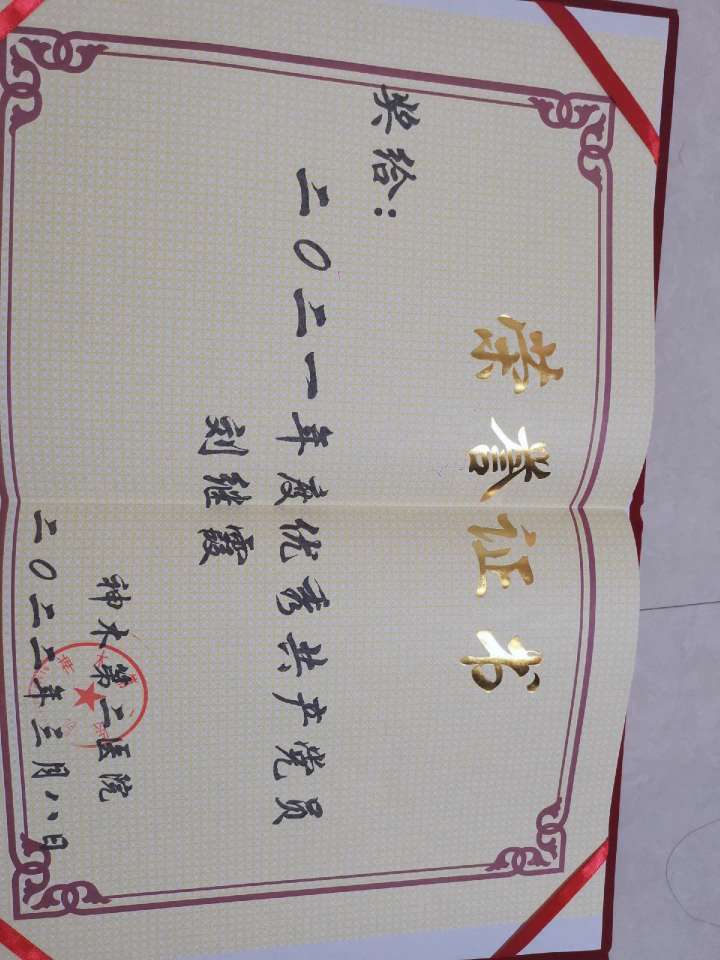 荣誉证书
奖给：
二〇二一年度优秀共产党员
刘继霞
神木第二医院
二〇二二年三月八日